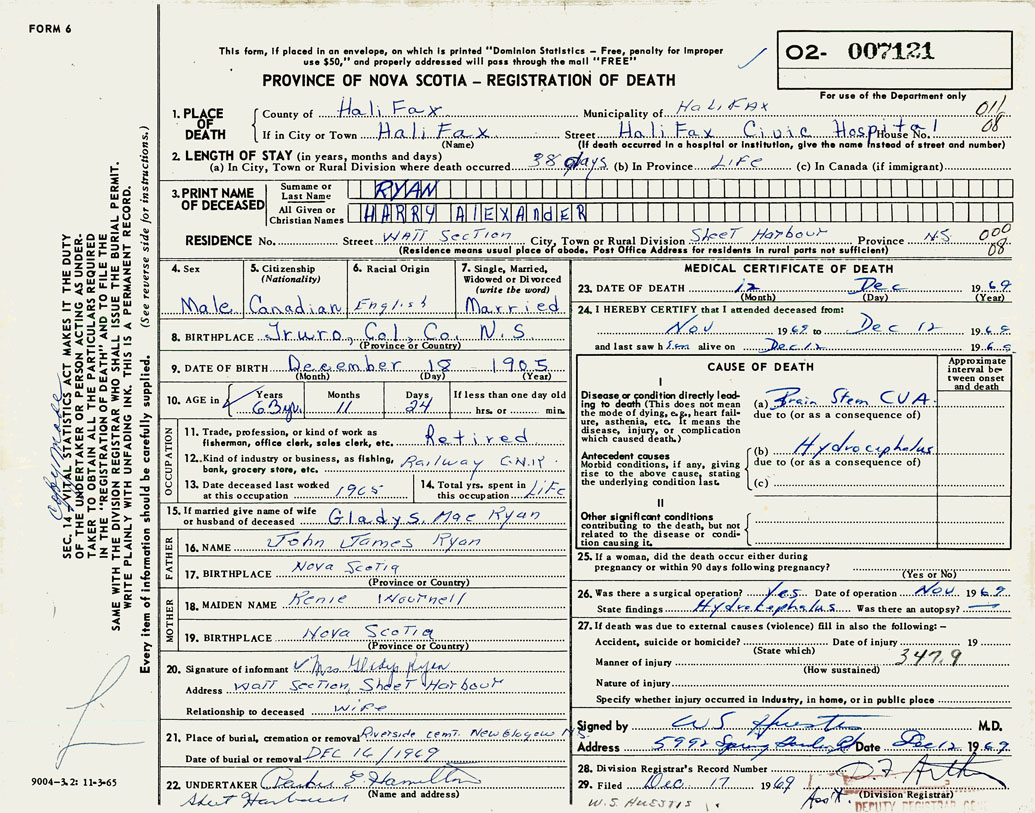 FORM 6
This form, if placed in an envelope, on which is printed "Dominion Statistics – Free, penalty for improper
use $50," and properly addressed will pass through the mail "FREE"
PROVINCE OF NOVA SCOTIA – REGISTRATION OF DEATH
O2- 007121
For use of the Department only
1. PLACE OF DEATH
County of HaliFax Municipality of HALIFAX 011
If in City or Town HaliFax Street HaliFax Civic Hospital House No. 08
(Name) (If death occurred in a hospital or institution, give the name instead of street and number)
2. LENGTH OF STAY (in years, months and days)
(a) In City, Town or Rural Division where death occurred 38 days (b) In Province LiFe (c) In Canada (if immigrant)
3. PRINT NAME OF DECEASED
Surname or Last Name RYAN
All Given or Christian Names HARRY AlEXANdER
RESIDENCE No. Street Watt Section City, Town or Rural Division Sheet Harbour Province N.S 000
(Residence means usual place of abode. Post Office Address for residents in rural parts not sufficient) 08
4. Sex 5. Citizenship (Nationality) 6. Racial Origin 7. Single, Married, Widowed or Divorced (write the word)
Male Canadian English Married
8. BIRTHPLACE Truro, Col, Co, N.S
(Province or Country)
9. DATE OF BIRTH December 18 1905
(Month) (Day) (Year)
10. AGE in Years Months Days If less than one day old
63 yr. 11 24 hrs. or min.
OCCUPATION
11. Trade, profession, or kind of work as fisherman, office clerk, sales clerk, etc. Retired
12. Kind of industry or business, as fishing, bank, grocery store, etc. Railway C.N.R
13. Date deceased last worked at this occupation 1965
14. Total yrs. spent in this occupation LiFe
15. If married give name of wife or husband of deceased Gladys Mae Ryan
FATHER
16. NAME John James Ryan
17. BIRTHPLACE Nova Scotia
(Province or Country)
MOTHER
18. MAIDEN NAME Renie
19. BIRTHPLACE Nova Scotia
(Province or Country)
20. Signature of informant Mrs Gladys Ryan
Address Watt Section, Sheet Harbour
Relationship to deceased wiFe
21. Place of burial, cremation or removal Riverside cemt. New Glasgow N.S.
Date of burial or removal DEC 16/1969
22. UNDERTAKER Hamilton
(Name and address)
Sheet Harbour
MEDICAL CERTIFICATE OF DEATH
23. DATE OF DEATH 12 Dec 1969
(Month) (Day) (Year)
24. I HEREBY CERTIFY that I attended deceased from:
Nov 1969 to Dec 12 1969
and last saw h im alive on Dec 12 1969
CAUSE OF DEATH
Approximate interval between onset and death
I
Disease or condition directly leading to death (This does not mean the mode of dying, e.g., heart failure, asthenia, etc. It means the disease, injury, or complication which caused death.)
(a) Brain Stem CVA
due to (or as a consequence of)
Antecedent causes
Morbid conditions, if any, giving rise to the above cause, stating the underlying condition last.
(b) Hydrocephalus
due to (or as a consequence of)
(c)
II
Other significant conditions
contributing to the death, but not related to the disease or condition causing it.
25. If a woman, did the death occur either during
pregnancy or within 90 days following pregnancy?
(Yes or No)
26. Was there a surgical operation? Yes. Date of operation Nov 1969
State findings Hydrocephalus Was there an autopsy? —
27. If death was due to external causes (violence) fill in also the following: –
Accident, suicide or homicide? Date of injury 19
(State which)
Manner of injury 347.9
(How sustained)
Nature of injury
Specify whether injury occurred in Industry, in home, or in public place
Signed by W.S. Huestis M.D.
Address 5992 Spring Date Dec 12 1969
28. Division Registrar's Record Number
29. Filed Dec 17 1969
(Division Registrar)
W.S. HUESTIS
Ass't.
DEPUTY REGISTRAR GEN
SEC. 14 VITAL STATISTICS ACT MAKES IT THE DUTY
OF THE UNDERTAKER OR PERSON ACTING AS UNDER-
TAKER TO OBTAIN ALL THE PARTICULARS REQUIRED
IN THE "REGISTRATION OF DEATH" AND TO FILE THE
SAME WITH THE DIVISION REGISTRAR WHO SHALL ISSUE THE BURIAL PERMIT.
WRITE PLAINLY WITH UNFADING INK. THIS IS A PERMANENT RECORD.
Every item of information should be carefully supplied. (See reverse side for instructions.)
9004-3.2: 11-3-65